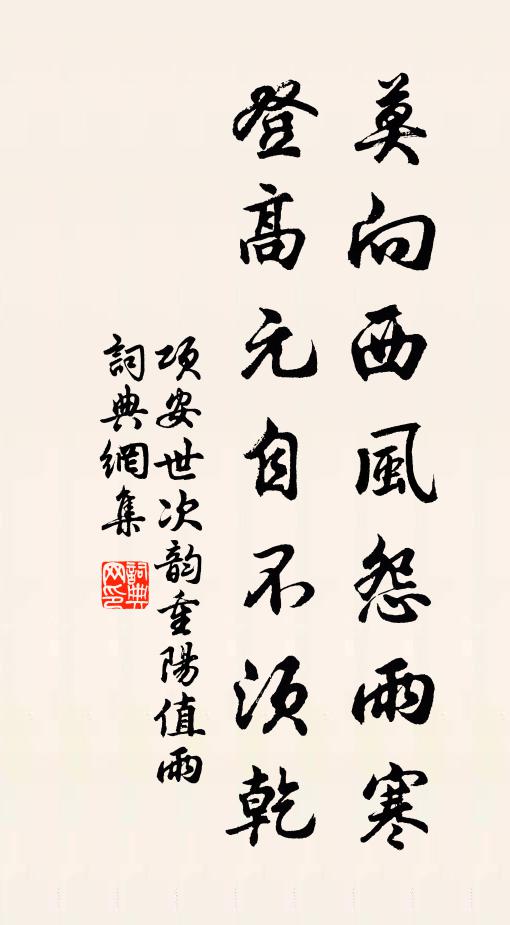 莫向西風怨雨寒
登高元自不須乾
項安世次韵重陽值雨
詞典網集
詞典网印